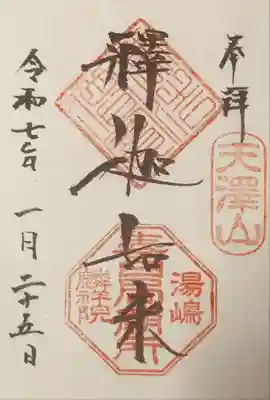 奉拝
天澤山
釋迦如来
湯嶋
麟祥院
令和七年 一月二十五日